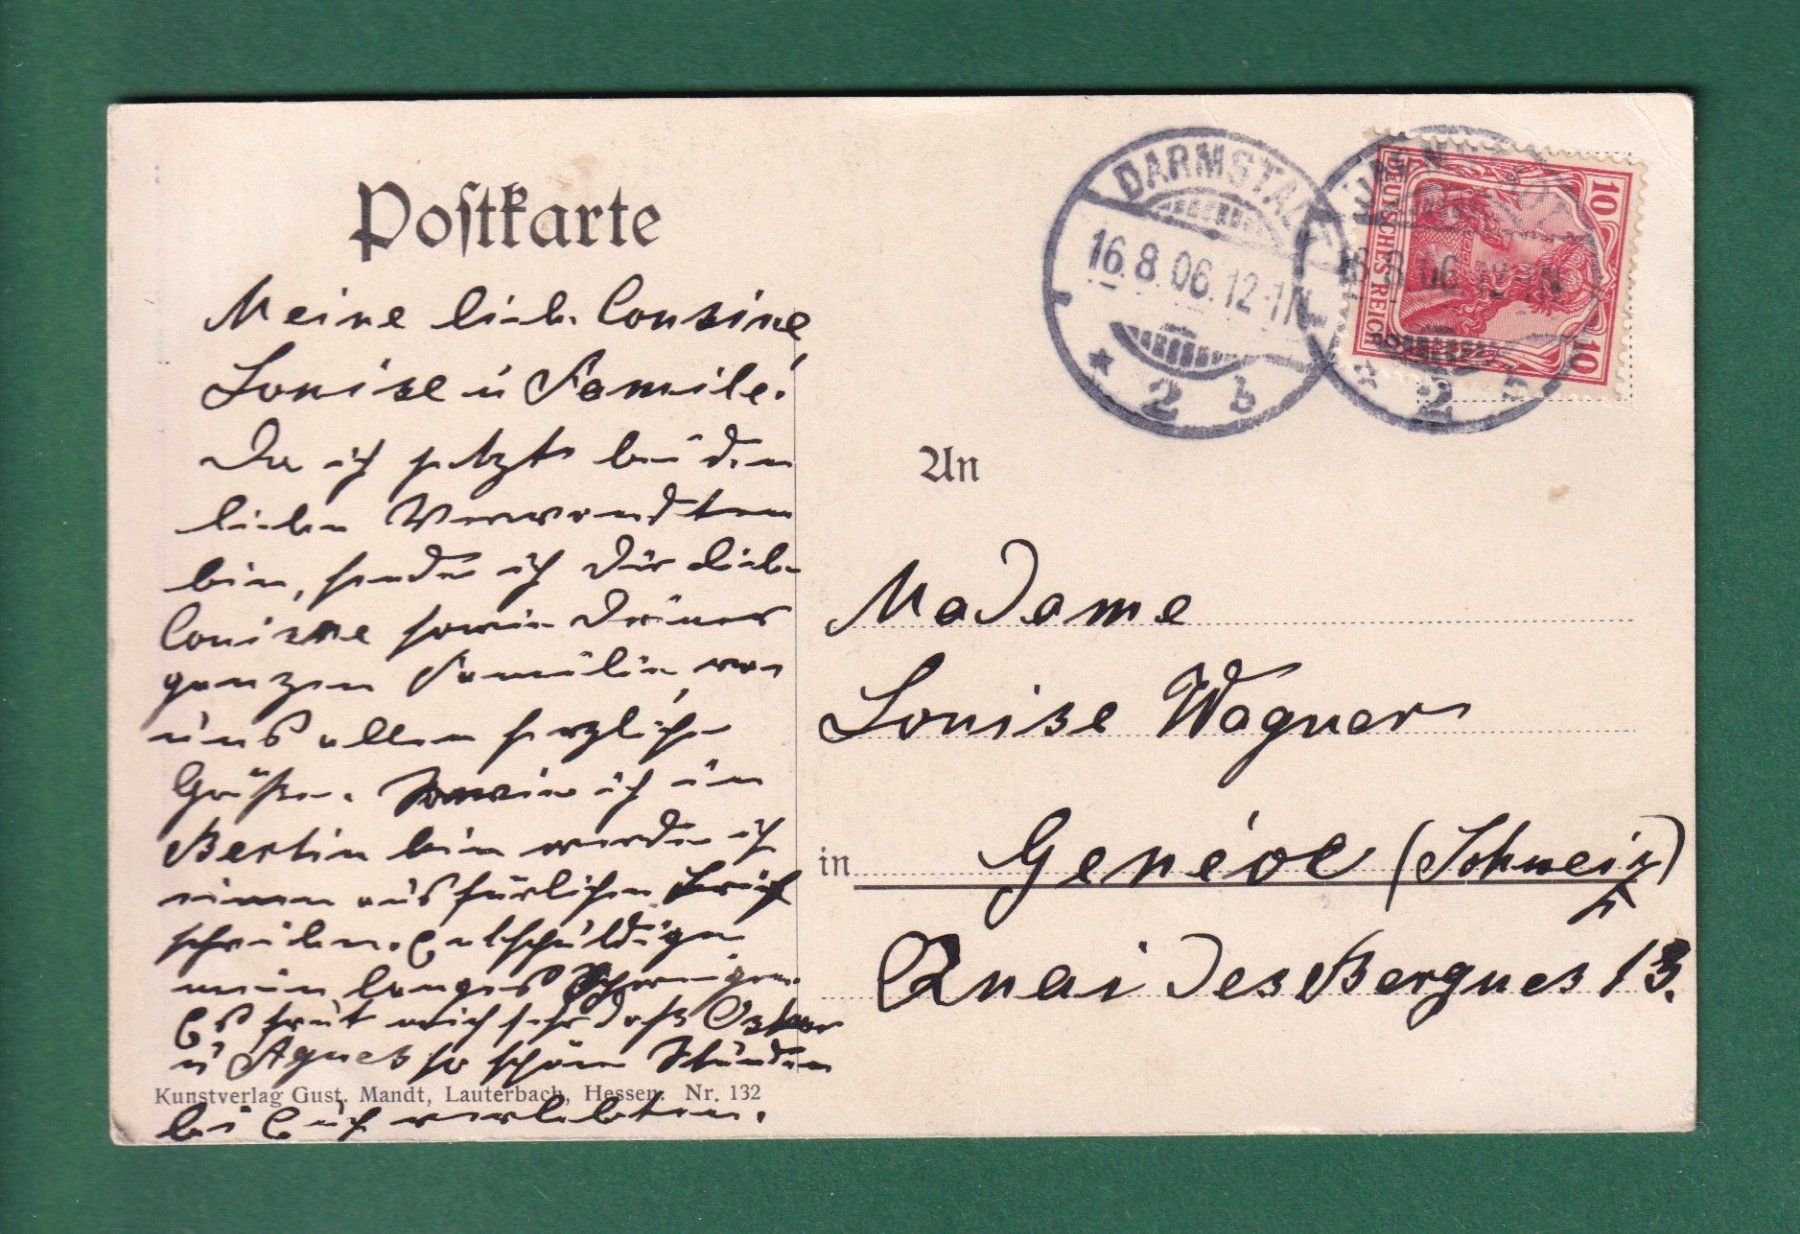 Postkarte
Meine lieb. Cousine
Louise u Familie!
Da ich jetzt bei den
lieben Verwandten
bin, sende ich Dir liebe
Cousine sowie Deiner
ganzen Familie, von
uns allen herzliche
Grüße. Sowie ich in
Berlin bin werde ich
einen ausfürlichen Brief
schreiben. Entschuldige
mein langes Schweigen.
Es freut mich sehr daß Oskar
u Agnes so schöne Stunden
bei Euch verlebten.
Kunstverlag Gust. Mandt, Lauterbach, Hessen. Nr. 132
DARMSTADT
16.8.06.12-1N
* 2 b
DARMSTADT
16.8.06.12-1N
* 2 b
DEUTSCHES REICH
10
10
An
Madame
Louise Wagner
in Genéve (Schweiz)
Quai des Bergues 13.